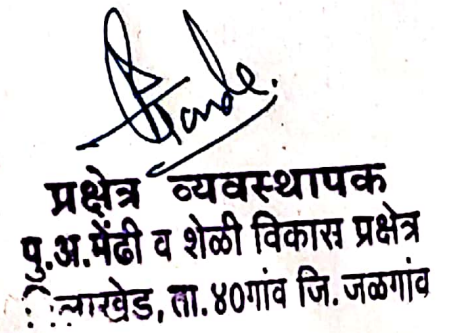 प्रक्षेत्र व्यवस्थापक
पु.अ.मेंढी व शेळी विकास प्रक्षेत्र
ता.४०गांव जि.जळगांव